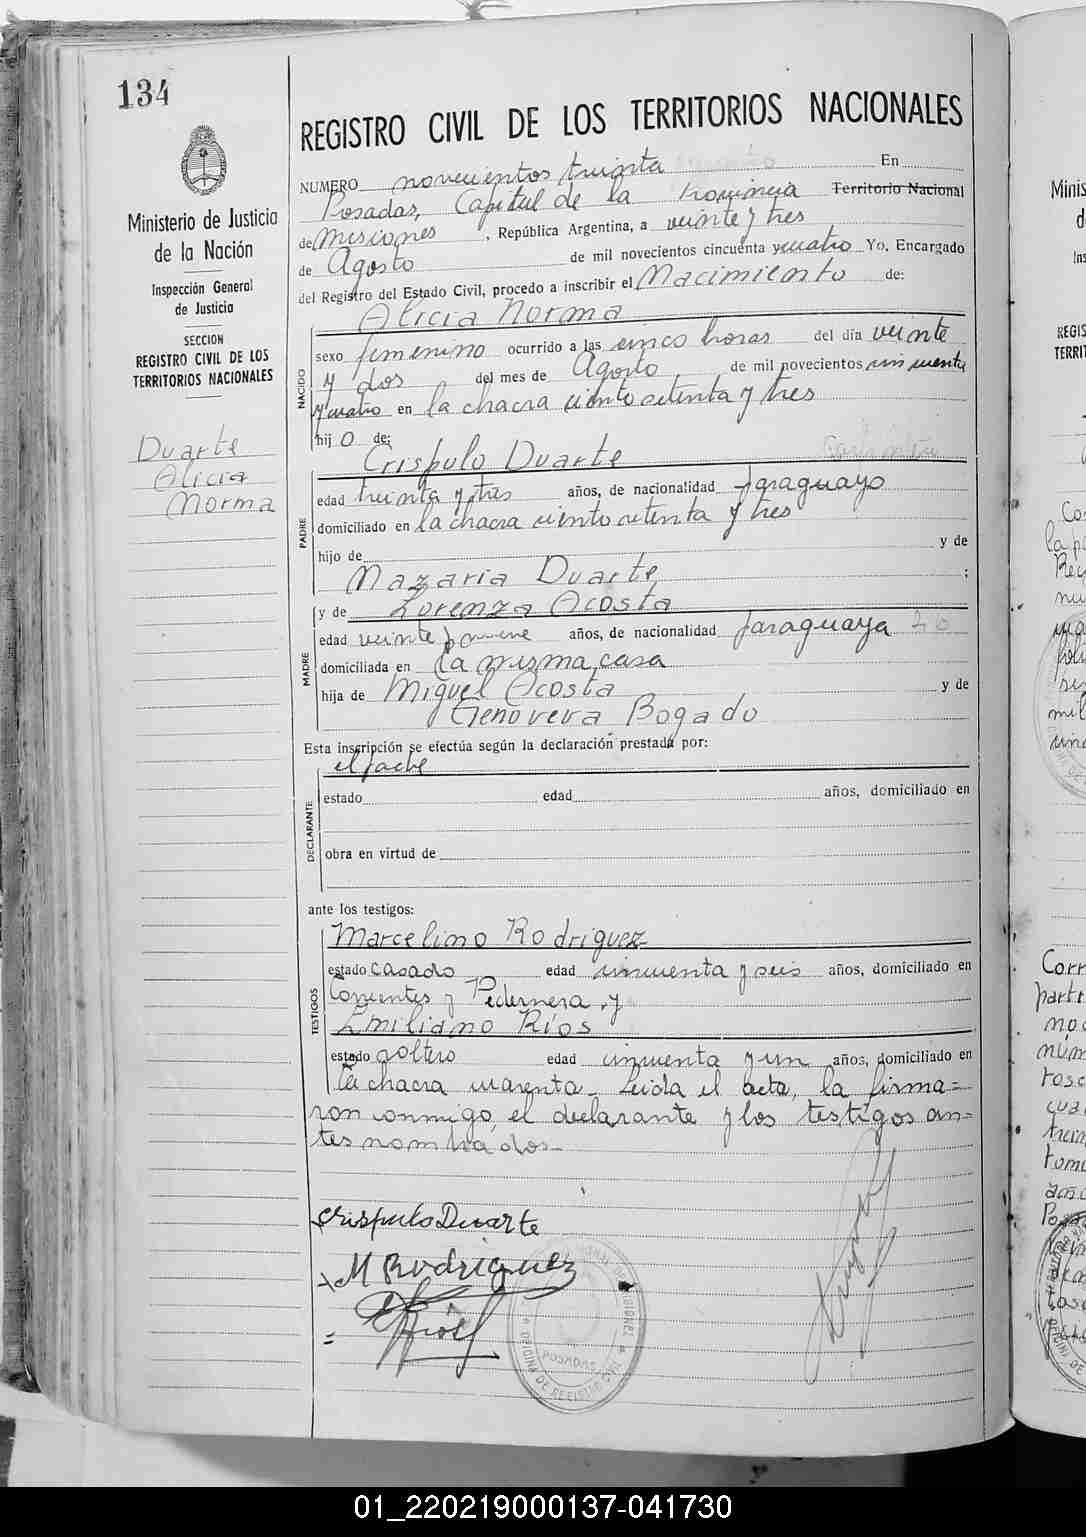 134
Ministerio de Justicia
de la Nación
Inspección General
de Justicia
SECCION
REGISTRO CIVIL DE LOS
TERRITORIOS NACIONALES
Duarte
Alicia
Norma
REGISTRO CIVIL DE LOS TERRITORIOS NACIONALES
NUMERO novecientos treinta En
Posadas, Capital de la Provincia Territorio Nacional
de Misiones, República Argentina, a veinte y tres
de Agosto de mil novecientos cincuenta y cuatro Yo, Encargado
del Registro del Estado Civil, procedo a inscribir el Nacimiento de:
Alicia Norma
NACIDO
sexo femenino ocurrido a las cinco horas del día veinte
y dos del mes de Agosto de mil novecientos cincuenta
y cuatro en la chacra ciento setenta y tres
hij o de:
Crispulo Duarte
PADRE
edad treinta y tres años, de nacionalidad paraguayo
domiciliado en la chacra ciento setenta y tres
hijo de y de
Nazaria Duarte ;
y de Lorenza Acosta
MADRE
edad veinte y nueve años, de nacionalidad paraguaya
domiciliada en la misma casa
hija de Miguel Acosta y de
Genoveva Bogado
Esta inscripción se efectúa según la declaración prestada por:
el padre
DECLARANTE
estado edad años, domiciliado en
obra en virtud de
ante los testigos:
Marcelino Rodriguez
TESTIGOS
estado casado edad cincuenta y seis años, domiciliado en
Corrientes y Pedernera, y
Emiliano Ríos
estado soltero edad cincuenta y un años, domiciliado en
la chacra cuarenta. Leida el acta, la firma=
ron conmigo, el declarante y los testigos an=
tes nombrados.
Crispulo Duarte
M Rodriguez
E Rios
POSADAS
OFICINA DE REGISTRO CIVIL
01_220219000137-041730